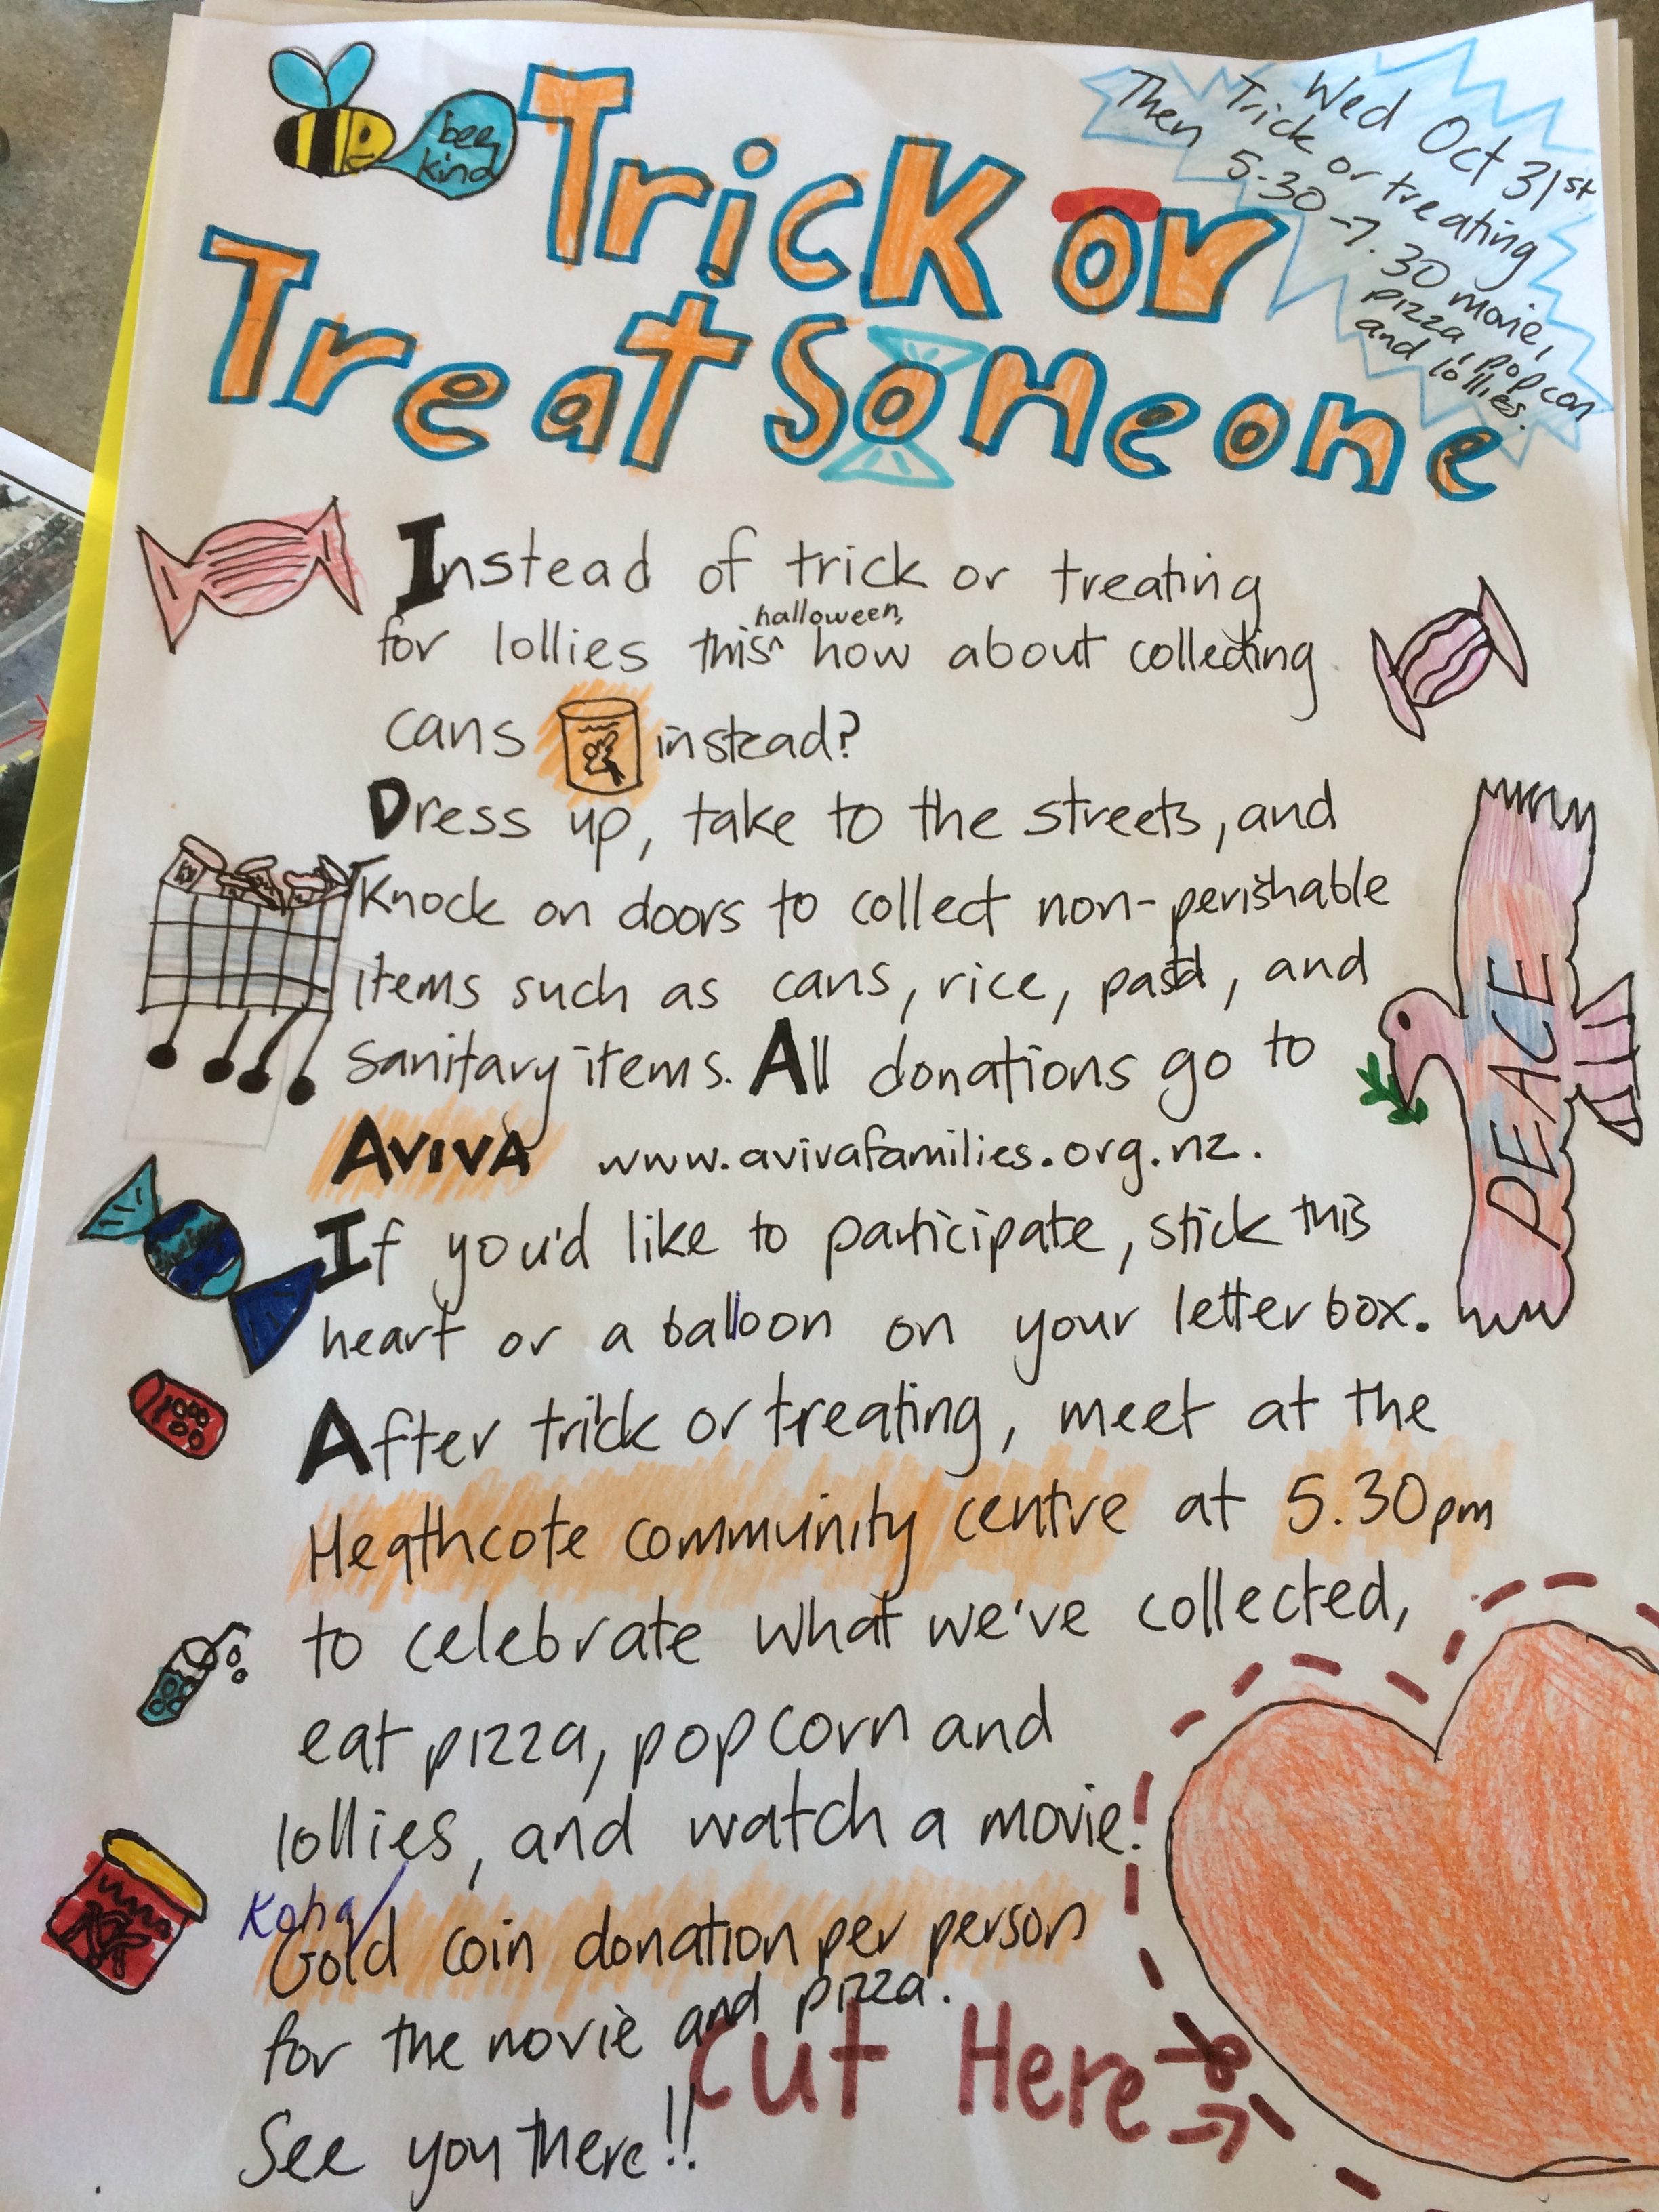 bee
kind
Trick or
Treat Someone
Wed Oct 31st
Trick or treating
Then 5.30-7.30 movie,
pizza, popcorn
and lollies.
Instead of trick or treating
for lollies this ^ halloween, how about collecting
cans instead?
Dress up, take to the streets, and
knock on doors to collect non-perishable
items such as cans, rice, pasta, and
sanitary items. All donations go to
AVIVA www.avivafamilies.org.nz.
If you'd like to participate, stick this
heart or a balloon on your letterbox.
After trick or treating, meet at the
Heathcote community centre at 5.30pm
to celebrate what we've collected,
eat pizza, popcorn and
lollies, and watch a movie!
Koha/
Gold coin donation per person
for the movie and pizza.
See you there!!
Cut Here
PEACE